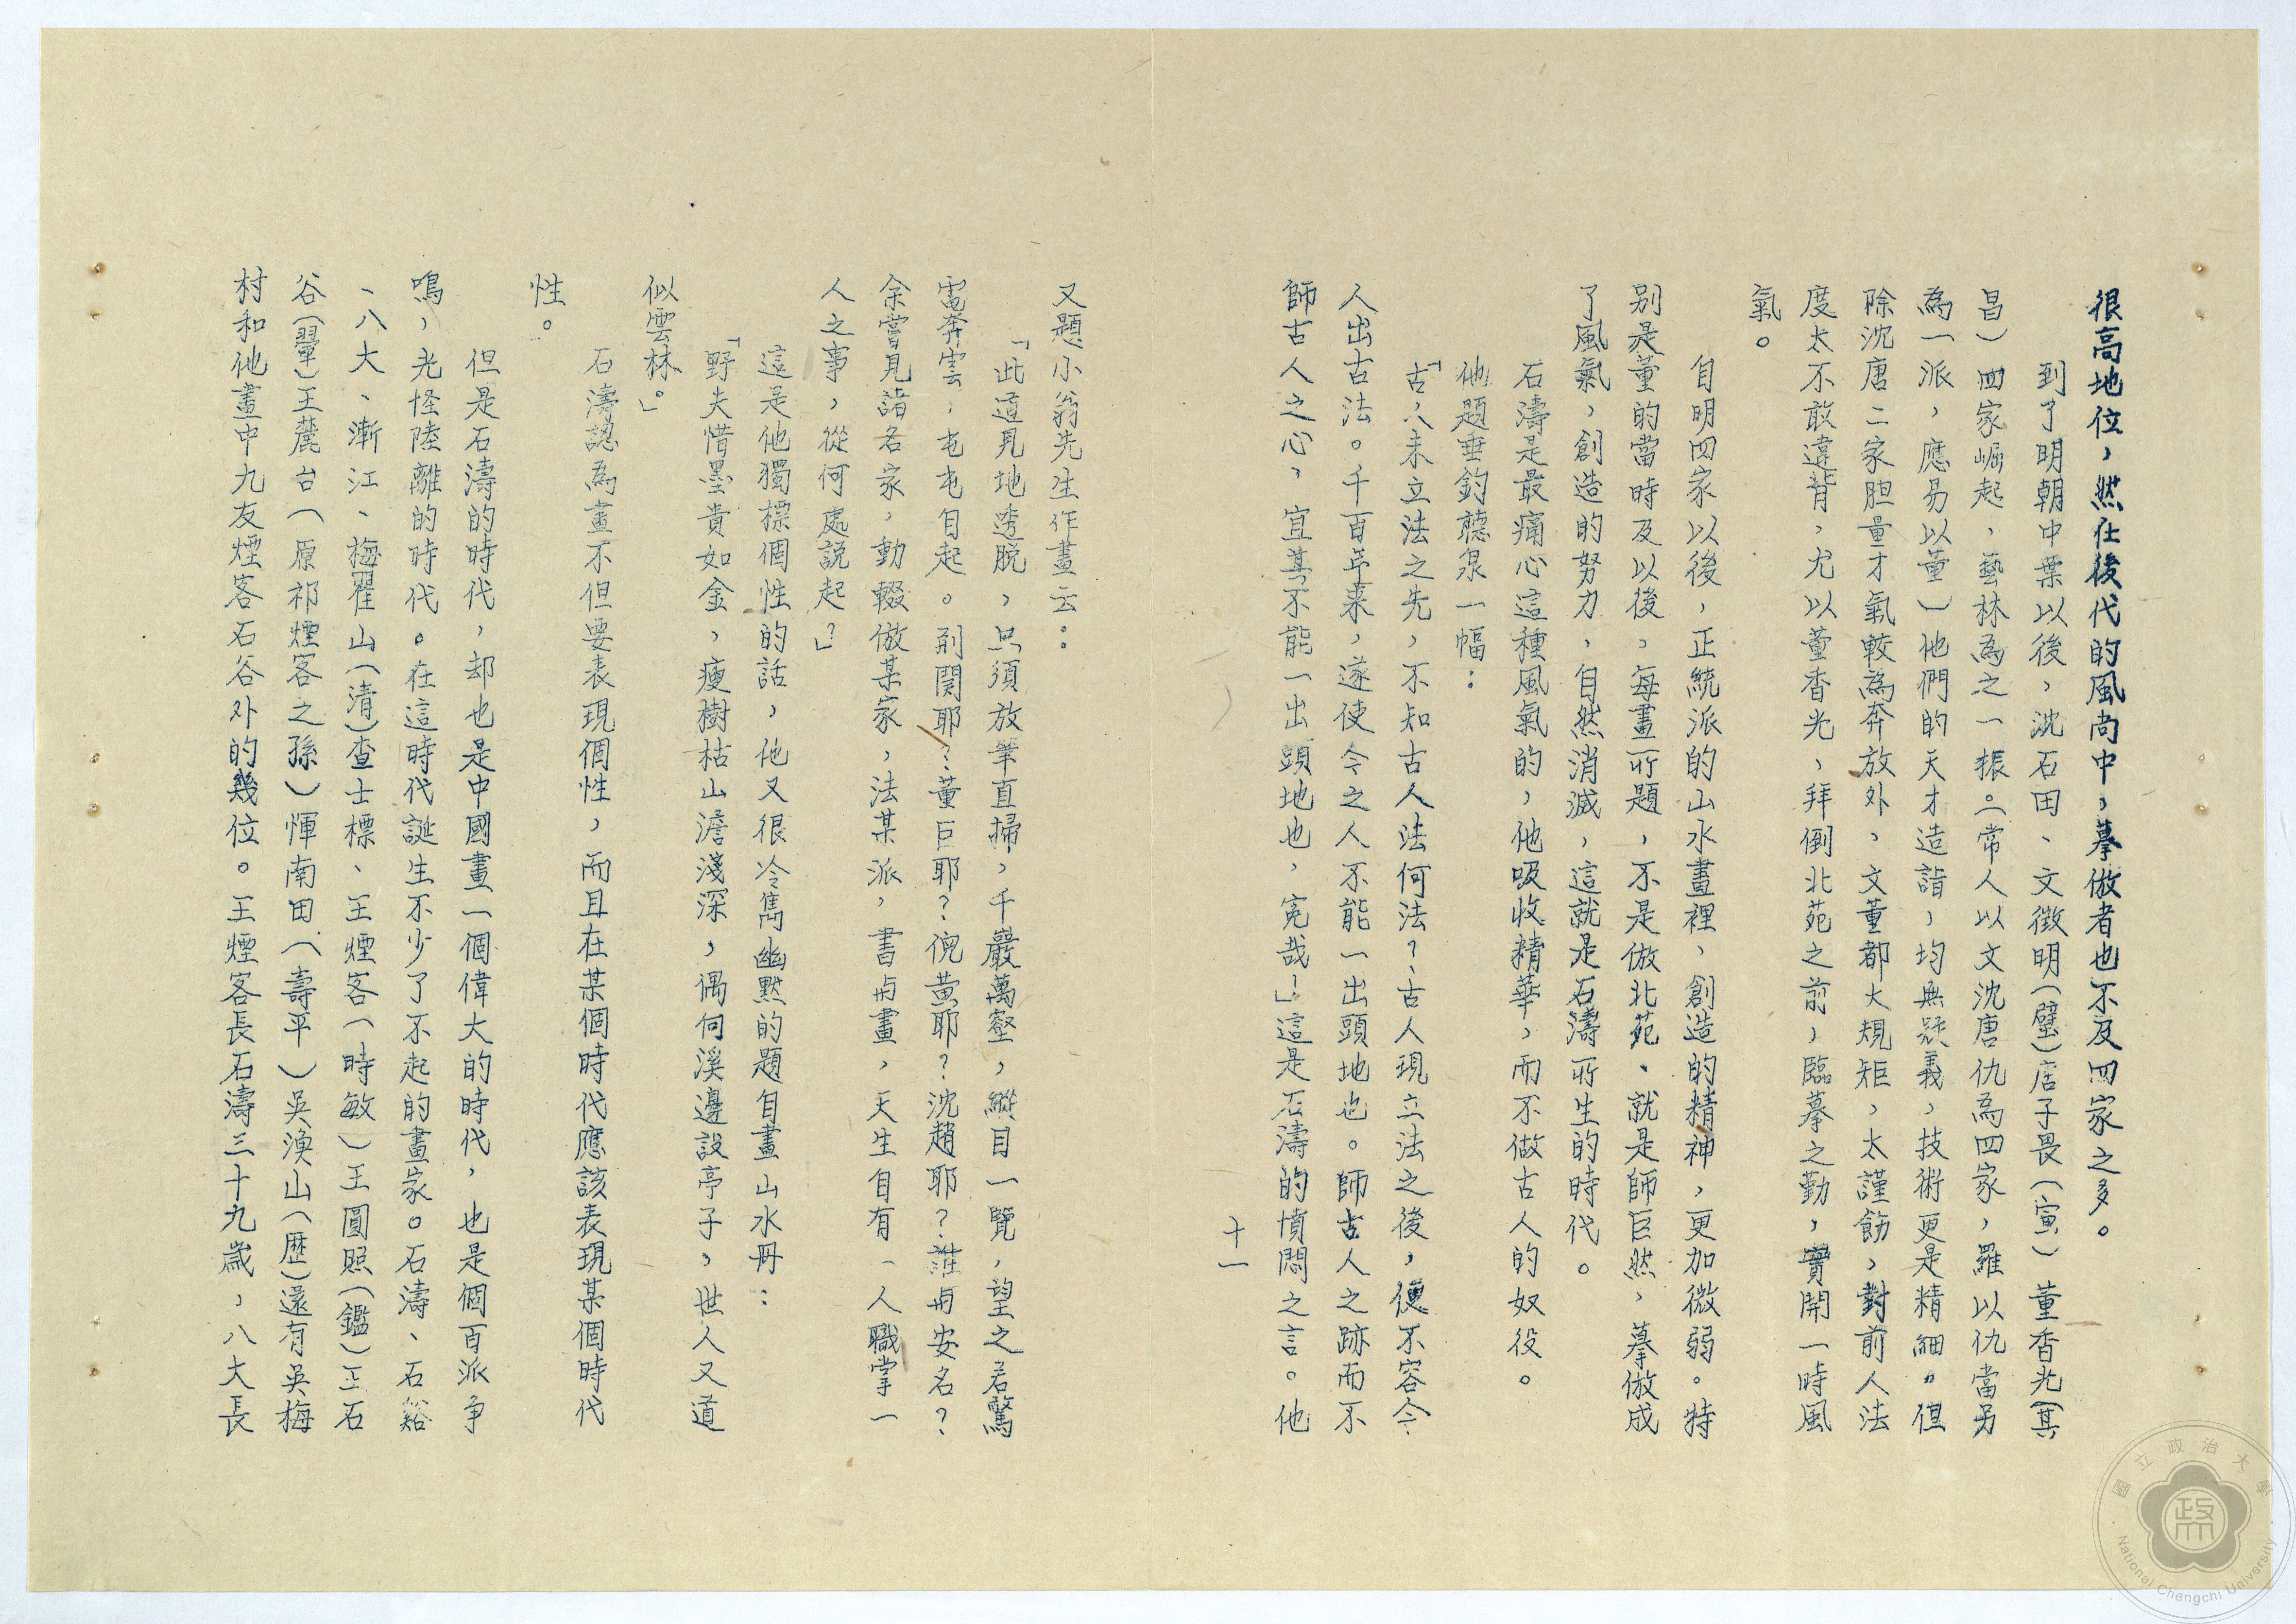 很高地位，然在後代的風尚中，摹倣者也不及四家之多。
到了明朝中葉以後，沈石田、文徵明（璧）唐子畏（寅）董香光（其
昌）四家崛起，藝林為之一振。（常人以文沈唐仇為四家，羅以仇當另
為一派，應易以董）他們的天才造詣，均無疑義，技術更是精細。但
除沈唐二家胆量才氣較為奔放外，文董都大規矩，太謹飭，對前人法
度太不敢違背，尤以董香光，拜倒北苑之前，臨摹之勤，實開一時風
氣。
自明四家以後，正統派的山水畫裡，創造的精神，更加微弱。特
別是董的當時及以後，每畫所題，不是倣北苑、就是師巨然，摹倣成
了風氣，創造的努力，自然消滅，這就是石濤所生的時代。
石濤是最痛心這種風氣的，他吸收精華，而不做古人的奴役。
他題垂釣聽泉一幅：
「古人未立法之先，不知古人法何法？古人現立法之後，便不容今
人出古法。千百年來，遂使今之人不能一出頭地也。師古人之跡而不
師古人之心，宜其不能一出頭地也，寃哉！」這是石濤的憤悶之言。他
十一
又題小翁先生作畫云：
「此道見地透脱，只須放筆直掃，千巖萬壑，縱目一覽，望之若驚
電奔雲，屯屯自起。荆関耶？董巨耶？倪黃耶？沈趙耶？誰與安名？
余嘗見諸名家，動輟倣某家，法某派，書與畫，天生自有一人職掌一
人之事，從何處説起？」
這是他獨標個性的話，他又很冷雋幽默的題自畫山水冊：
「野夫惜墨貴如金，瘦樹枯山澹淺深，偶向溪邊設亭子，世人又道
似雲林。」
石濤認為畫不但要表現個性，而且在某個時代應該表現某個時代
性。
但是石濤的時代，却也是中國畫一個偉大的時代，也是個百派争
鳴，光怪陸離的時代。在這時代誕生不少了不起的畫家。石濤、石谿
、八大、漸江、梅瞿山（清）查士標、王煙客（時敏）王圓照（鑑）王石
谷（翬）王麓台（原祁煙客之孫）惲南田（壽平）吳漁山（歷）還有吳梅
村和他畫中九友煙客石谷外的幾位。王煙客長石濤三十九歲，八大長
國立政治大學
National Chengchi University